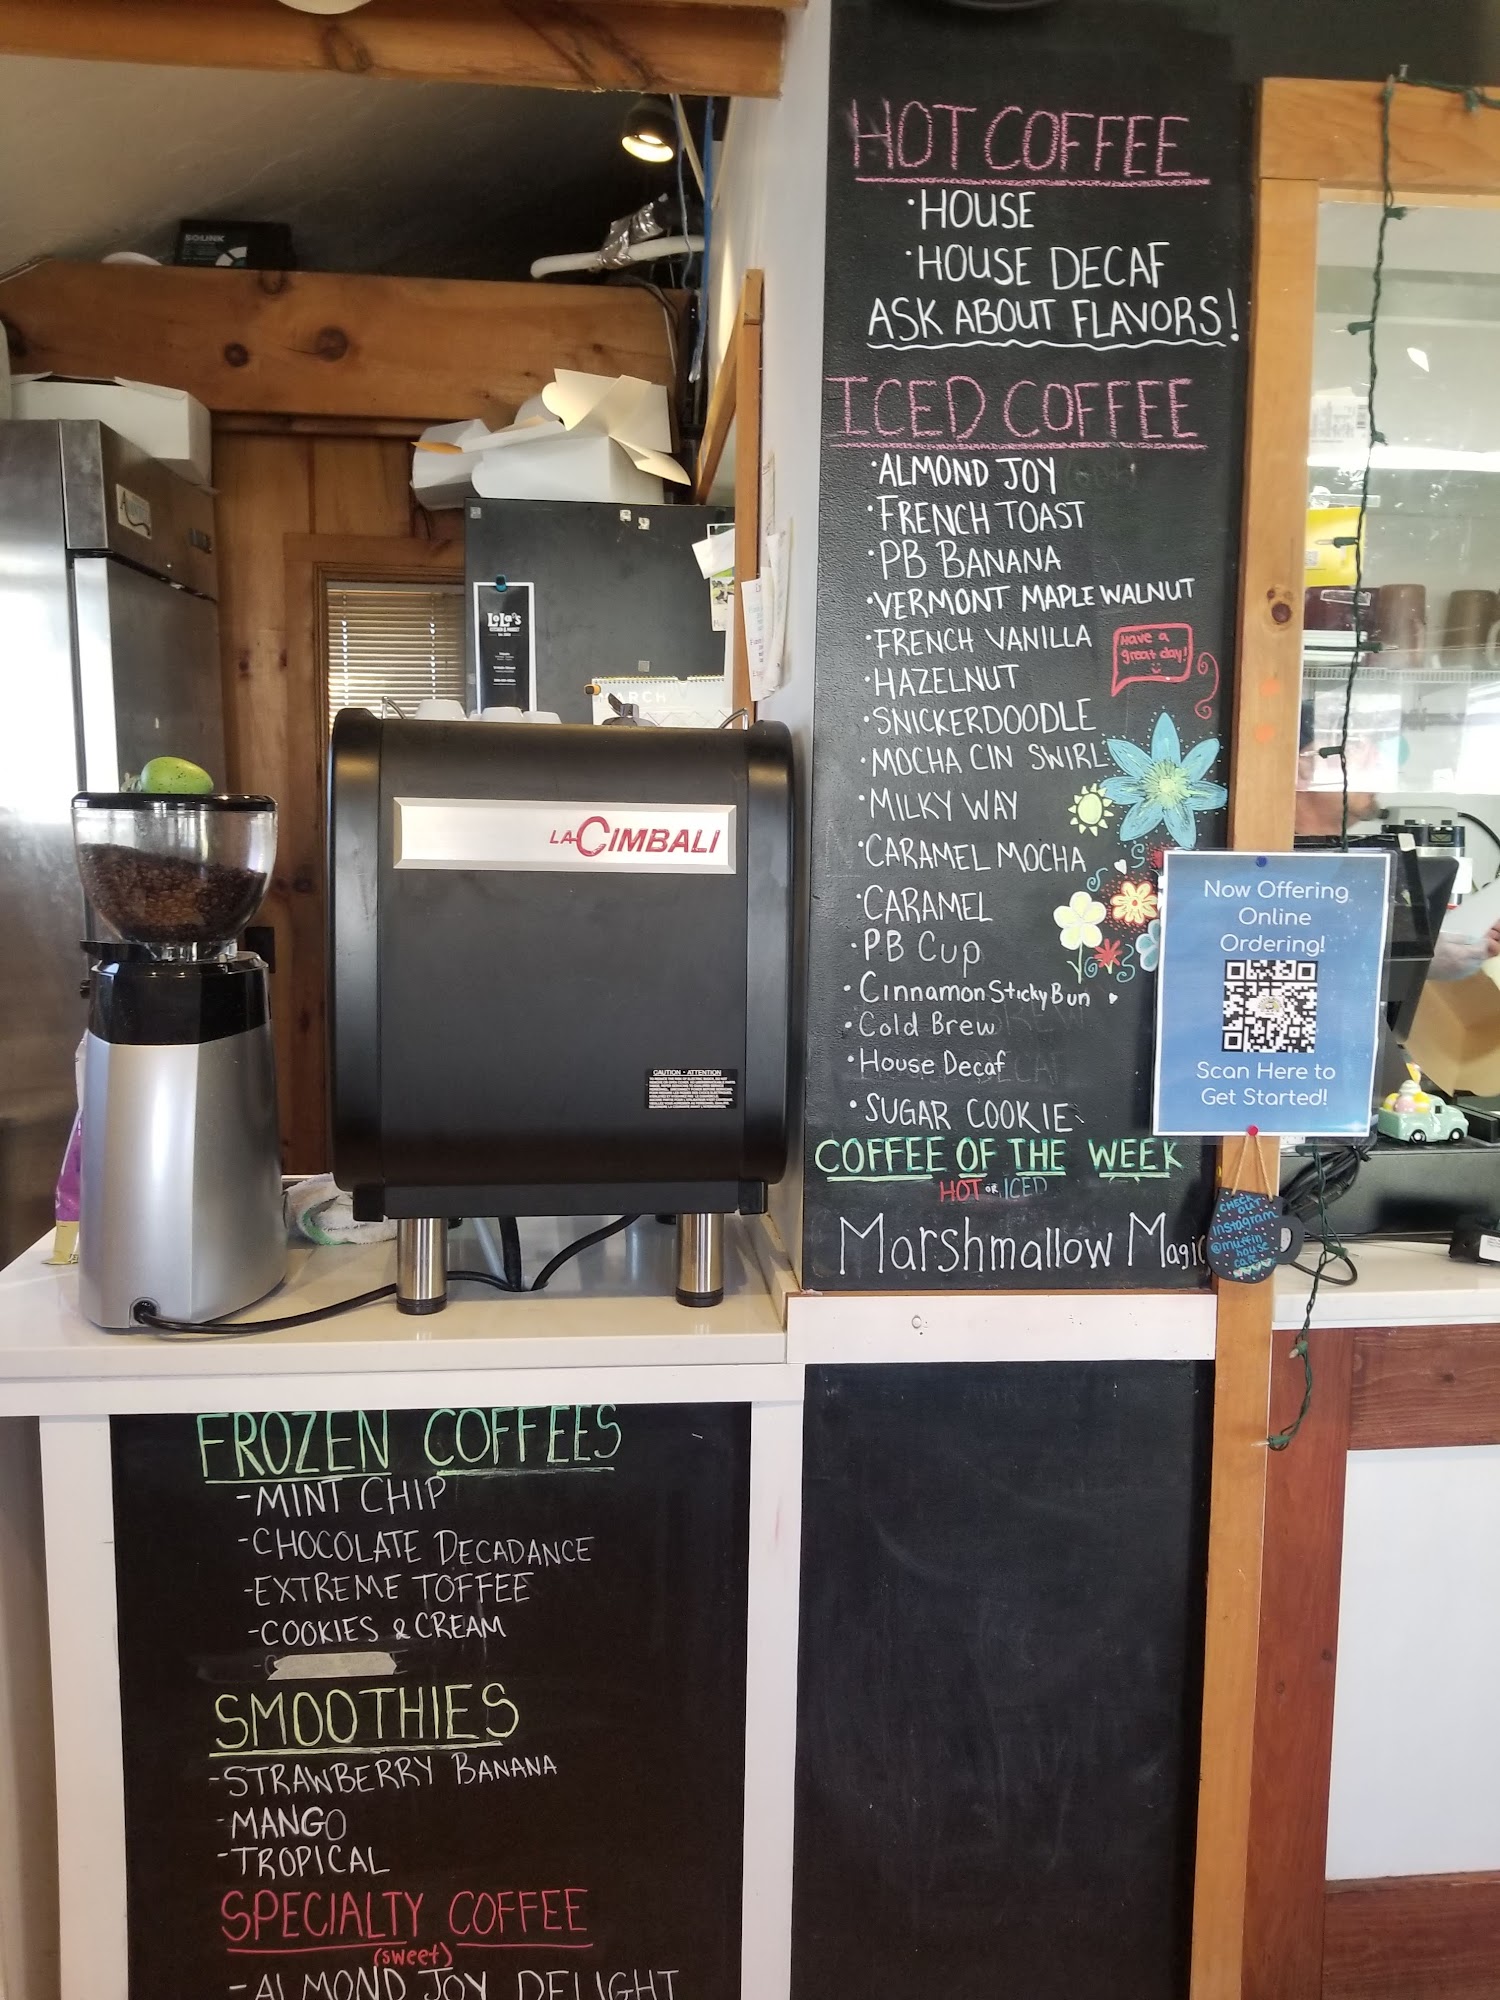 HOT COFFEE
·HOUSE
·HOUSE DECAF
ASK ABOUT FLAVORS!
ICED COFFEE
·ALMOND JOY
·FRENCH TOAST
·PB BANANA
·VERMONT MAPLE WALNUT
·FRENCH VANILLA
·HAZELNUT
·SNICKERDOODLE
·MOCHA CIN SWIRL
·MILKY WAY
·CARAMEL MOCHA
·CARAMEL
·PB CUP
·Cinnamon Sticky Bun
·Cold Brew
·House Decaf
·SUGAR COOKIE
COFFEE OF THE WEEK
HOT OR ICED
Marshmallow Magic
Have a
great day!
Now Offering
Online
Ordering!
Scan Here to
Get Started!
CHECK
OUT
Instagram
@muffin
house
cafe
SOLINK
LoLa's
MARCH
LA CIMBALI
CAUTION · ATTENTION
FROZEN COFFEES
-MINT CHIP
-CHOCOLATE DECADANCE
-EXTREME TOFFEE
-COOKIES & CREAM
SMOOTHIES
-STRAWBERRY BANANA
-MANGO
-TROPICAL
SPECIALTY COFFEE
(sweet)
-ALMOND JOY DELIGHT